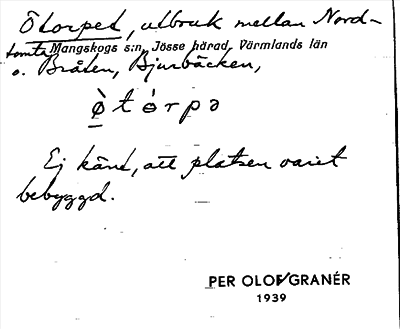 Ötorpet, utbruk mellan Nord-
tomta Mangskogs s:n, Jösse härad, Värmlands län
o. Bråten, Bjurbäcken,
ö̀ t ó r p ə
Ej känd, att platsen varit
bebyggd.
PER OLOF GRANÉR
1939